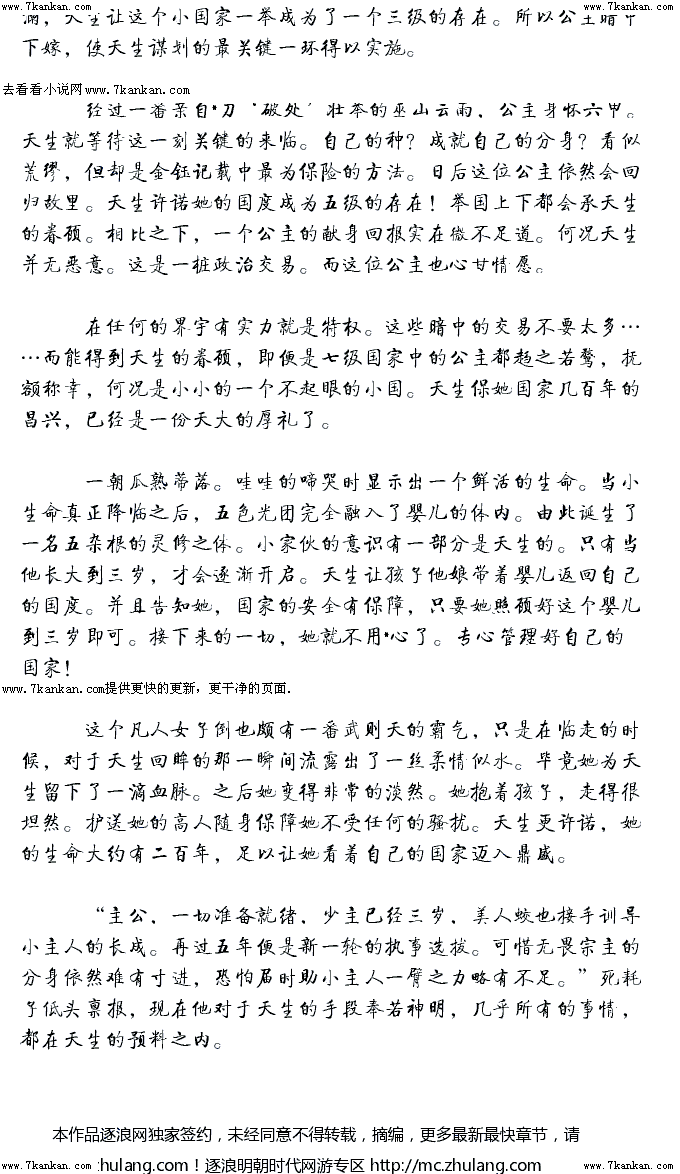 www.7kankan.com www.7kankan.com
满，天生让这个小国家一举成为了一个三级的存在。所以公主暗中
下嫁，使天生谋划的最关键一环得以实施。
去看看小说网www.7kankan.com
经过一番亲自*刀‘破处’壮举的巫山云雨，公主身怀六甲。
天生就等待这一刻关键的来临。自己的种？成就自己的分身？看似
荒缪，但却是金钰记载中最为保险的方法。日后这位公主依然会回
归故里。天生许诺她的国度成为五级的存在！举国上下都会承天生
的眷顾。相比之下，一个公主的献身回报实在微不足道。何况天生
并无恶意。这是一桩政治交易。而这位公主也心甘情愿。
在任何的界宇有实力就是特权。这些暗中的交易不要太多…
…而能得到天生的眷顾，即便是七级国家中的公主都趋之若鹜，抚
额称幸，何况是小小的一个不起眼的小国。天生保她国家几百年的
昌兴，已经是一份天大的厚礼了。
一朝瓜熟蒂落。哇哇的啼哭时显示出一个鲜活的生命。当小
生命真正降临之后，五色光团完全融入了婴儿的体内。由此诞生了
一名五杂根的灵修之体。小家伙的意识有一部分是天生的。只有当
他长大到三岁，才会逐渐开启。天生让孩子他娘带着婴儿返回自己
的国度。并且告知她，国家的安全有保障，只要她照顾好这个婴儿
到三岁即可。接下来的一切，她就不用*心了。专心管理好自己的
国家！
www.7kankan.com提供更快的更新，更干净的页面.
这个凡人女子倒也颇有一番武则天的霸气，只是在临走的时
候，对于天生回眸的那一瞬间流露出了一丝柔情似水。毕竟她为天
生留下了一滴血脉。之后她变得非常的淡然。她抱着孩子，走得很
坦然。护送她的高人随身保障她不受任何的骚扰。天生更许诺，她
的生命大约有二百年，足以让她看着自己的国家迈入鼎盛。
“主公，一切准备就绪，少主已经三岁，美人蛟也接手训导
小主人的长成。再过五年便是新一轮的执事选拔。可惜无畏宗主的
分身依然难有寸进，恐怕届时助小主人一臂之力略有不足。”死耗
子低头禀报，现在他对于天生的手段奉若神明，几乎所有的事情，
都在天生的预料之内。
本作品逐浪网独家签约，未经同意不得转载，摘编，更多最新最快章节，请
www.7kankan.com zhulang.com！逐浪明朝时代网游专区 http://mc.zhulang.com www.7kankan.com